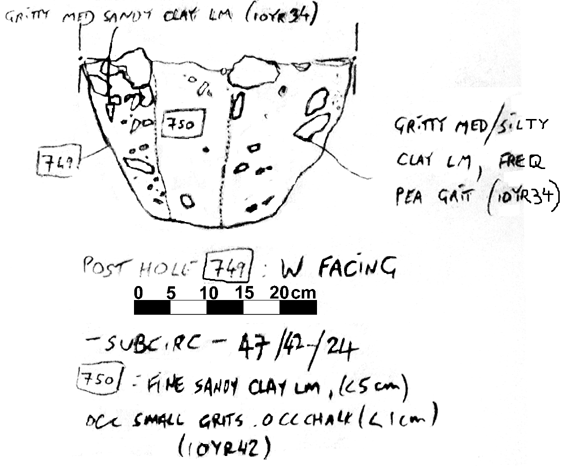 GRITTY MED SANDY CLAY LM (10YR34)
750
749
GRITTY MED/SILTY
CLAY LM, FREQ
PEA GRIT (10YR34)
POST HOLE 749 : W FACING
0 5 10 15 20cm
- SUBCIRC - 47/42/24
750 : FINE SANDY CLAY LM, (<5cm)
OCC SMALL GRITS. OCC CHALK (<1cm)
(10YR42)